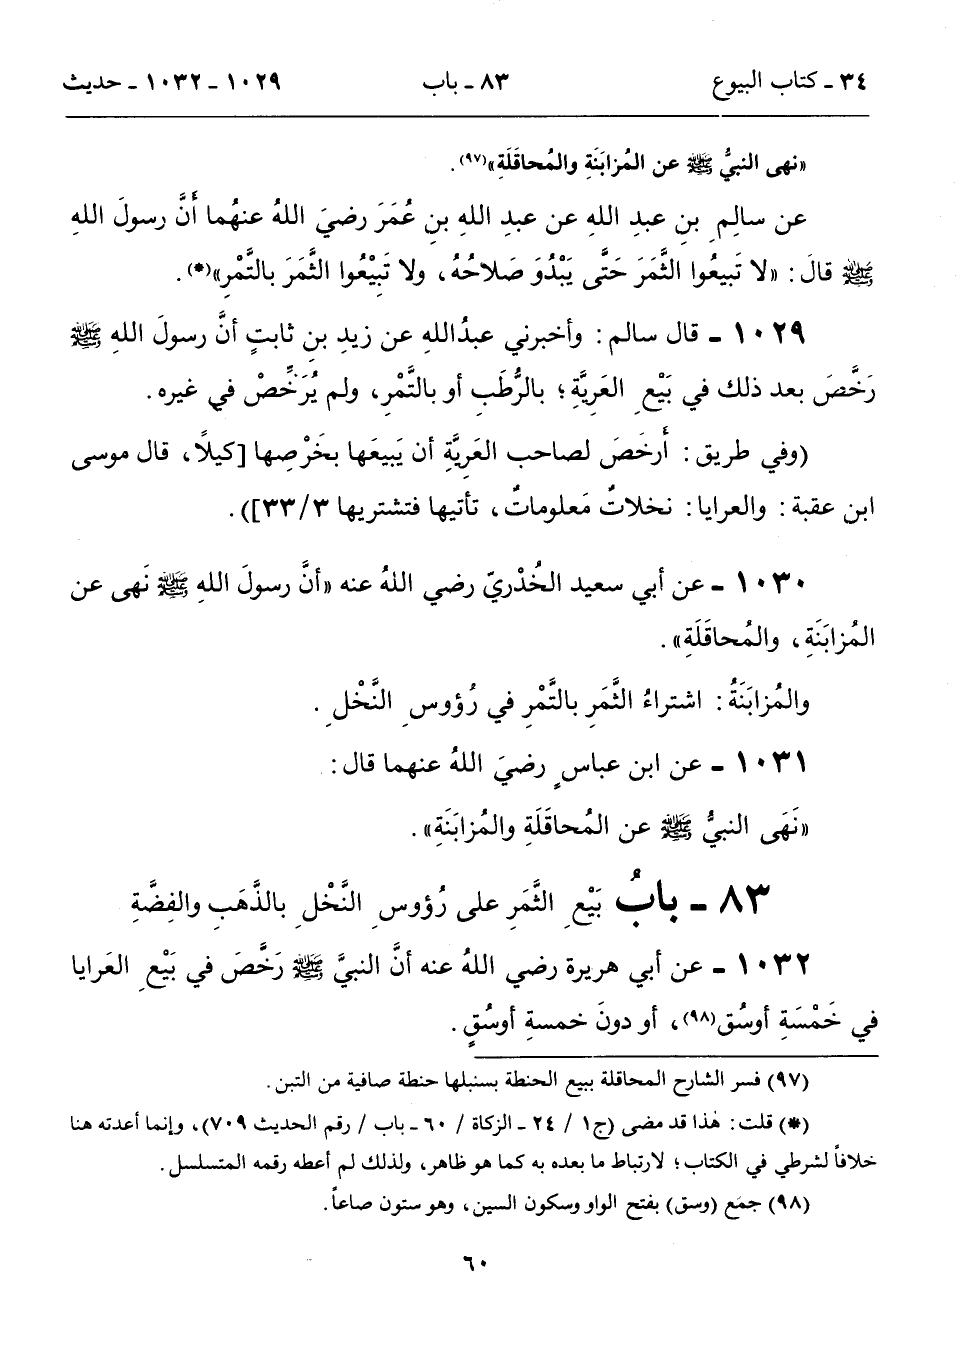 ٣٤ ـ كتاب البيوع ٨٣ ـ باب ١٠٢٩ ـ ١٠٣٢ ـ حديث
«نهى النبيُّ ﷺ عن المُزابَنَةِ والمُحاقَلَةِ»(٩٧).
عن سالِمِ بنِ عبدِ اللهِ عن عبدِ اللهِ بنِ عُمَرَ رضيَ اللهُ عنهُما أَنَّ رسولَ اللهِ
ﷺ قالَ: «لا تَبيعُوا الثَّمَرَ حَتَّى يَبْدُوَ صَلاحُهُ، ولا تَبِيْعُوا الثَّمَرَ بالتَّمْرِ»(*).
١٠٢٩ ـ قال سالم: وأخبرني عبدُاللهِ عن زيدِ بنِ ثابتٍ أنَّ رسولَ اللهِ ﷺ
رَخَّصَ بعد ذلك في بَيْعِ العَرِيَّةِ؛ بالرُّطَبِ أو بالتَّمْرِ، ولم يُرَخِّصْ في غيره.
(وفي طريق: أَرخَصَ لصاحب العَرِيَّةِ أن يَبيعَها بخَرْصِها [كيلاً، قال موسى
ابن عقبة: والعرايا: نخلاتٌ مَعلوماتٌ، تأتيها فتشتريها ٣/ ٣٣]).
١٠٣٠ ـ عن أبي سعيد الخُدْريّ رضي اللهُ عنه «أنَّ رسولَ اللهِ ﷺ نَهى عن
المُزابَنَةِ، والمُحاقَلَةِ».
والمُزابَنَةُ: اشتراءُ الثَّمَرِ بالتَّمْرِ في رُؤوسِ النَّخْلِ.
١٠٣١ ـ عن ابن عباسٍ رضيَ اللهُ عنهما قال:
«نَهَى النبيُّ ﷺ عن المُحاقَلَةِ والمُزابَنَةِ».
٨٣ ـ بابُ بَيْعِ الثَّمَرِ على رُؤوسِ النَّخْلِ بالذَّهَبِ والفِضَّةِ
١٠٣٢ ـ عن أبي هريرة رضي اللهُ عنه أنَّ النبيَّ ﷺ رَخَّصَ في بَيْعِ العَرايا
في خَمْسَةِ أوسُق(٩٨)، أو دونَ خمسةِ أوسُقٍ.
(٩٧) فسر الشارح المحاقلة ببيع الحنطة بسنبلها حنطة صافية من التبن.
(*) قلت: هٰذا قد مضى (ج١ / ٢٤ ـ الزكاة / ٦٠ ـ باب / رقم الحديث ٧٠٩)، وإنما أعدته هنا
خلافاً لشرطي في الكتاب؛ لارتباط ما بعده به كما هو ظاهر، ولذلك لم أعطه رقمه المتسلسل.
(٩٨) جمَع (وسق) بفتح الواو وسكون السين، وهو ستون صاعاً.
٦٠